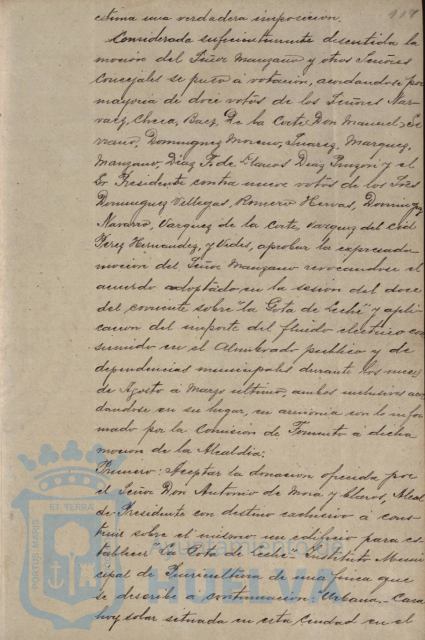 117
estima una verdadera imposicion.
Considerada suficientemente discutida la
mocion del Señor Manzano y otros Señores
Concejales se puso á votacion, acordandose por
mayoria de doce votos de los Señores Nar-
vaez, Checa, Baez, De la Corte, Don Manuel Se-
rrano, Dominguez Moreno, Suarez, Marquez,
Manzano, Diaz F. de Llanos Diaz Pinzon y el
Sr Presidente contra nueve votos de los Sres
Dominguez Villegas, Romero Hervas, Dominguez
Navarro, Vazquez de la Corte, Vazquez del Cid
Perez Hernandez, y Vides, aprobar la expresada
mocion del Señor Manzano revocandose el
acuerdo adoptado en la sesion del doce
del corriente sobre "La Gota de Leche" y apli-
cacion del importe del fluido electrico con
sumido en el Alumbrado publico y de
dependencias municipales durante los meses
de Agosto á Marzo ultimo, ambos inclusives acor
dandose en su lugar, en armonia con lo infor
mado por la Comision de Fomento á dicha
mocion de la Alcaldia:
Primero: Aceptar la donacion ofrecida por
el Señor Don Antonio de Mora y Claros, Alcal
de Presidente con destino exclusivo á cons-
truir sobre el mismo un edificio para es-
tablecer "La Gota de Leche" Instituto Muni-
cipal de Puericultura de una finca que
se describe á continuacion: "Urbana.- Casa
hoy solar situada en esta Ciudad en el
PORTUS MARIS ET TERRAE
HUELVA